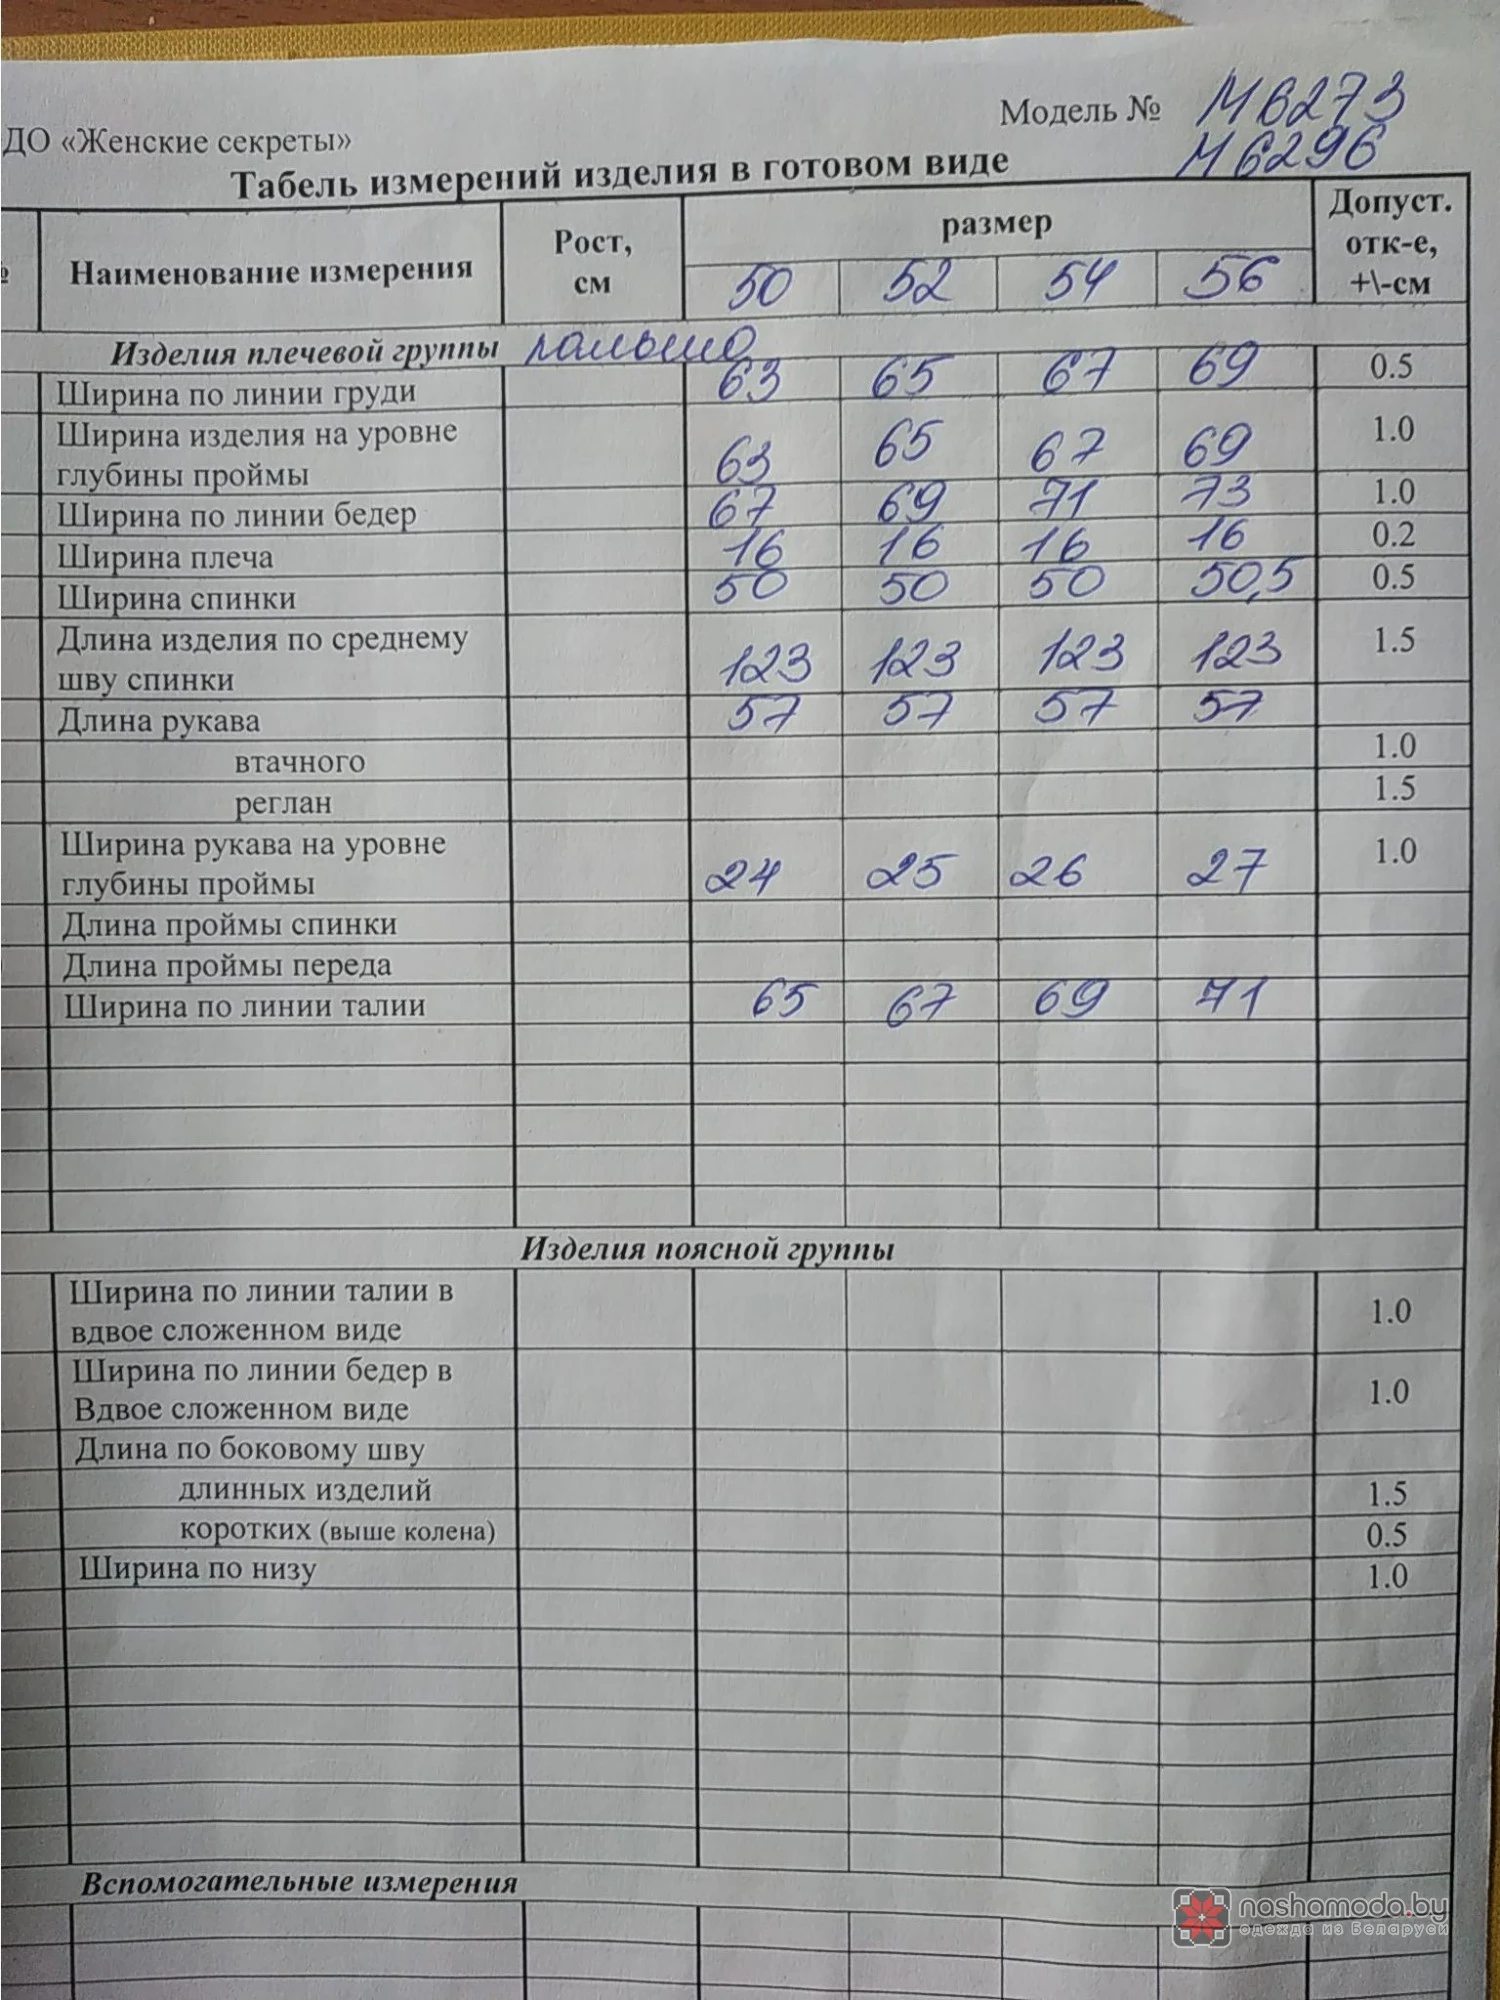 Модель № М6273
ДО «Женские секреты»
М6296
Табель измерений изделия в готовом виде
Наименование измерения
Рост, см
размер
Допуст. отк-е, +\-см
50 52 54 56
Изделия плечевой группы пальто
Ширина по линии груди 63 65 67 69 0.5
Ширина изделия на уровне
глубины проймы 63 65 67 69 1.0
Ширина по линии бедер 67 69 71 73 1.0
Ширина плеча 16 16 16 16 0.2
Ширина спинки 50 50 50 50,5 0.5
Длина изделия по среднему
шву спинки 123 123 123 123 1.5
Длина рукава 57 57 57 57
втачного 1.0
реглан 1.5
Ширина рукава на уровне
глубины проймы 24 25 26 27 1.0
Длина проймы спинки
Длина проймы переда
Ширина по линии талии 65 67 69 71
Изделия поясной группы
Ширина по линии талии в
вдвое сложенном виде 1.0
Ширина по линии бедер в
Вдвое сложенном виде 1.0
Длина по боковому шву
длинных изделий 1.5
коротких (выше колена) 0.5
Ширина по низу 1.0
Вспомогательные измерения
nashamoda.by
одежда из Беларуси